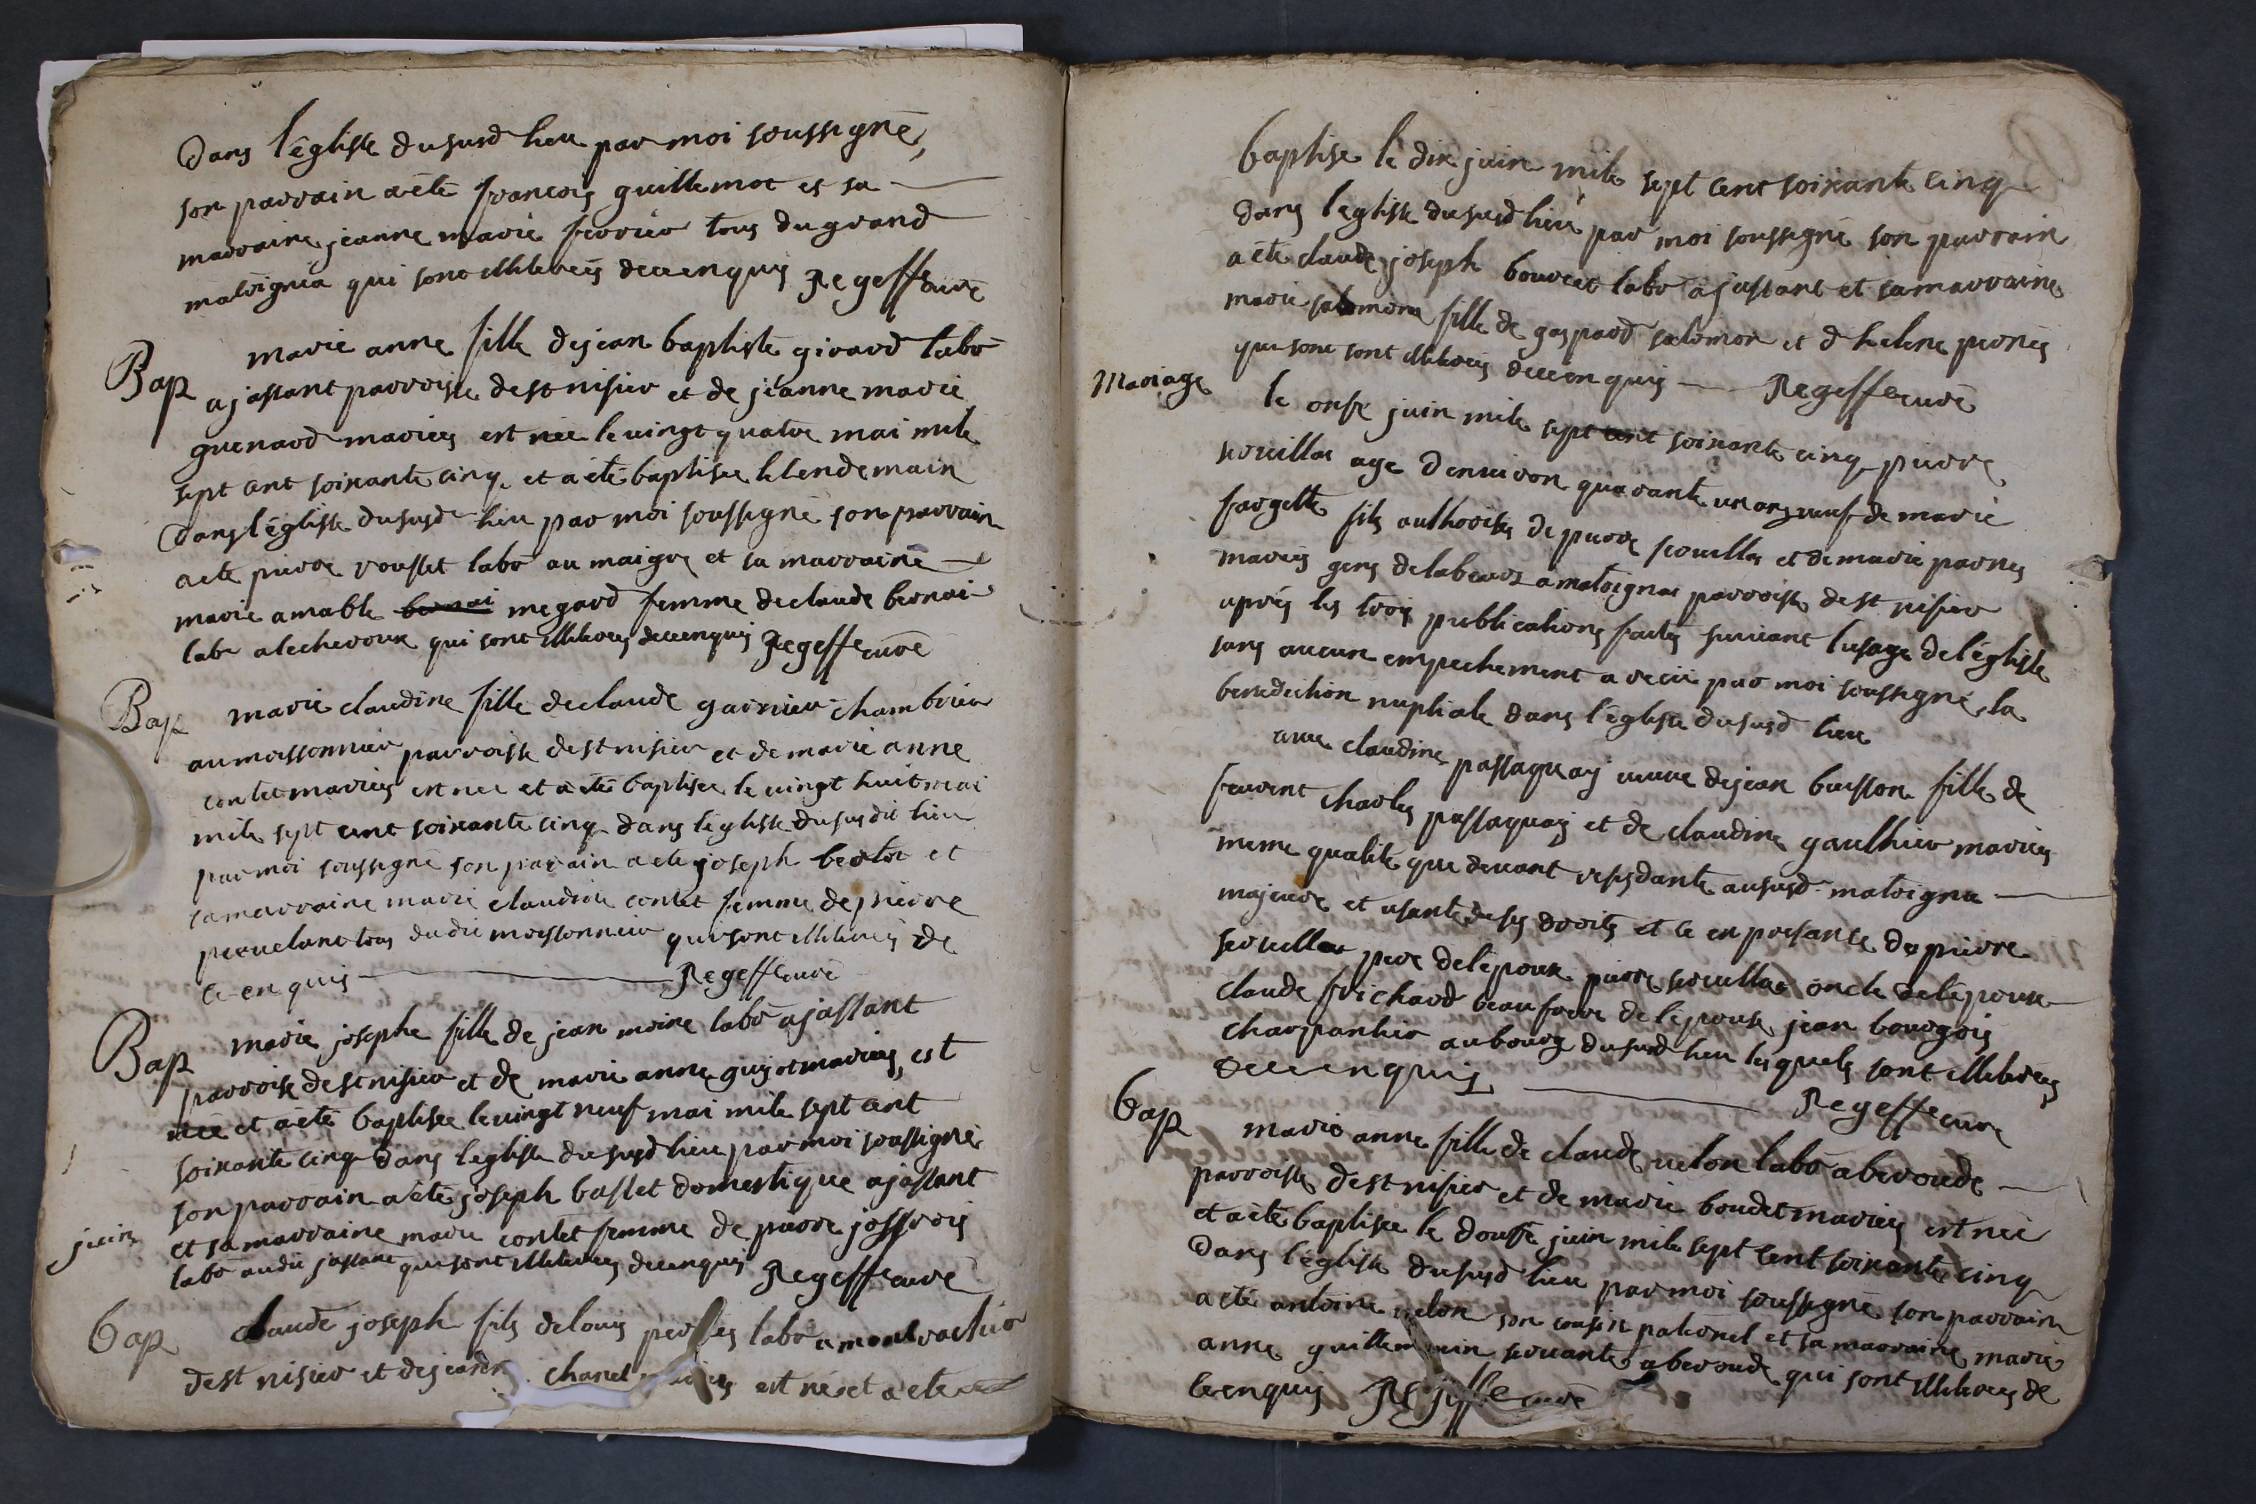 Dans l'église dususd lieu par moi soussigné,
son parrain a été francois guillemot et sa
marraine jeanne marie ferrier tous du grand
matoigna qui sont illiterés deceenquis Regeffe curé
Bap
marie anne fille dejean baptiste girard labo
ajastant parroisse de st nisier et de jeanne marie
guenard mariés est née le vingt quatre mai mile
sept cent soixante cinq et a été baptisée le lendemain
dans l'églisse dusus d lieu par moi soussigné son parrain
a ete pierre rousset labo au maigre et sa marraine
marie amable bernai megard femme de claude bernai
labo alecheroux qui sont illiterés deceenquis Regeffe curé
Bap
marie claudine fille de claude garnier chambrier
aumoissonnier parroisse de st nisier et de marie anne
contet mariés est nee et a eté baptisée le vingt huit mai
mile sept cent soixante cinq dans léglisse dususdit lieu
par moi soussigné son parain a ete joseph bertet et
samarraine marie claudine contet femme de pierre
tous dudit moissonnier qui sont illiterés de
ce enquis Regeffe curé
Bap
marie josephe fille de jean moine labo ajastant
parroisse de st nisier et de marie anne guyot mariés, est
née et a été baptisée le vingt neuf mai mile sept cent
soixante cinq dans léglisse du susd lieu par moi soussigné
son parrain a été joseph baslet domestique ajastant
et sa marraine marie contet femme de pierre joffrois
juin
labo audit jastant qui sont illiterés deceenquis Regeffe curé
bap
claude joseph fils de louis labo amontrachier
de st nisier et de chanel est né et a ete
baptise le dix juin mile sept cent soixante cinq
dans l'eglisse dususd lieu par moi soussigné son parrain
a été claude joseph bouvert labo ajastant et samarraine
marie salomon fille de gaspard salomon et d helene perrés
qui sont sont illiterés deceenquis Regeffe curé
Mariage
le onse juin mile sept cent soixante cinq pierre
serouillas age denviron quarante un ans veuf de marie
fargette fils authorise de pierre serouillas et de marie parnes
mariés gens delabeurs a matoignas parroisse de st nisier
après les trois publications faites suivant lusage de l'églisse
sans aucun empechement a reçu par moi soussigné la
benediction nuptiale dans l'églisse dususd lieu
avec claudine passaquay veuve dejean buisson fille de
feurent charles passaquay et de claudine gaulthier mariés
meme qualité que devant residante ausus d matoigna
majeure et usante de ses droits et ce en presence de pierre
serouillas pere de lépoux pierre serouillas oncle de lépoux
claude frichard beau frere de lepouse jean bourgois
charpantier au bourg dusus d lieu lesquels sont illiterés
deceenquis Regeffe curé
bap
marie anne fille de claude velon labo aberoude
parroisse de st nisier et de marie boudet mariés est née
et a été baptisée le douse juin mile sept cent soixante cinq
dans l'églisse dusus d lieu par moi soussigné son parrain
a eté antoine velon son cousin paternel et sa marraine marie
anne guillemmin servante aberoude qui sont illiterés de
ceenquis Regeffe curé